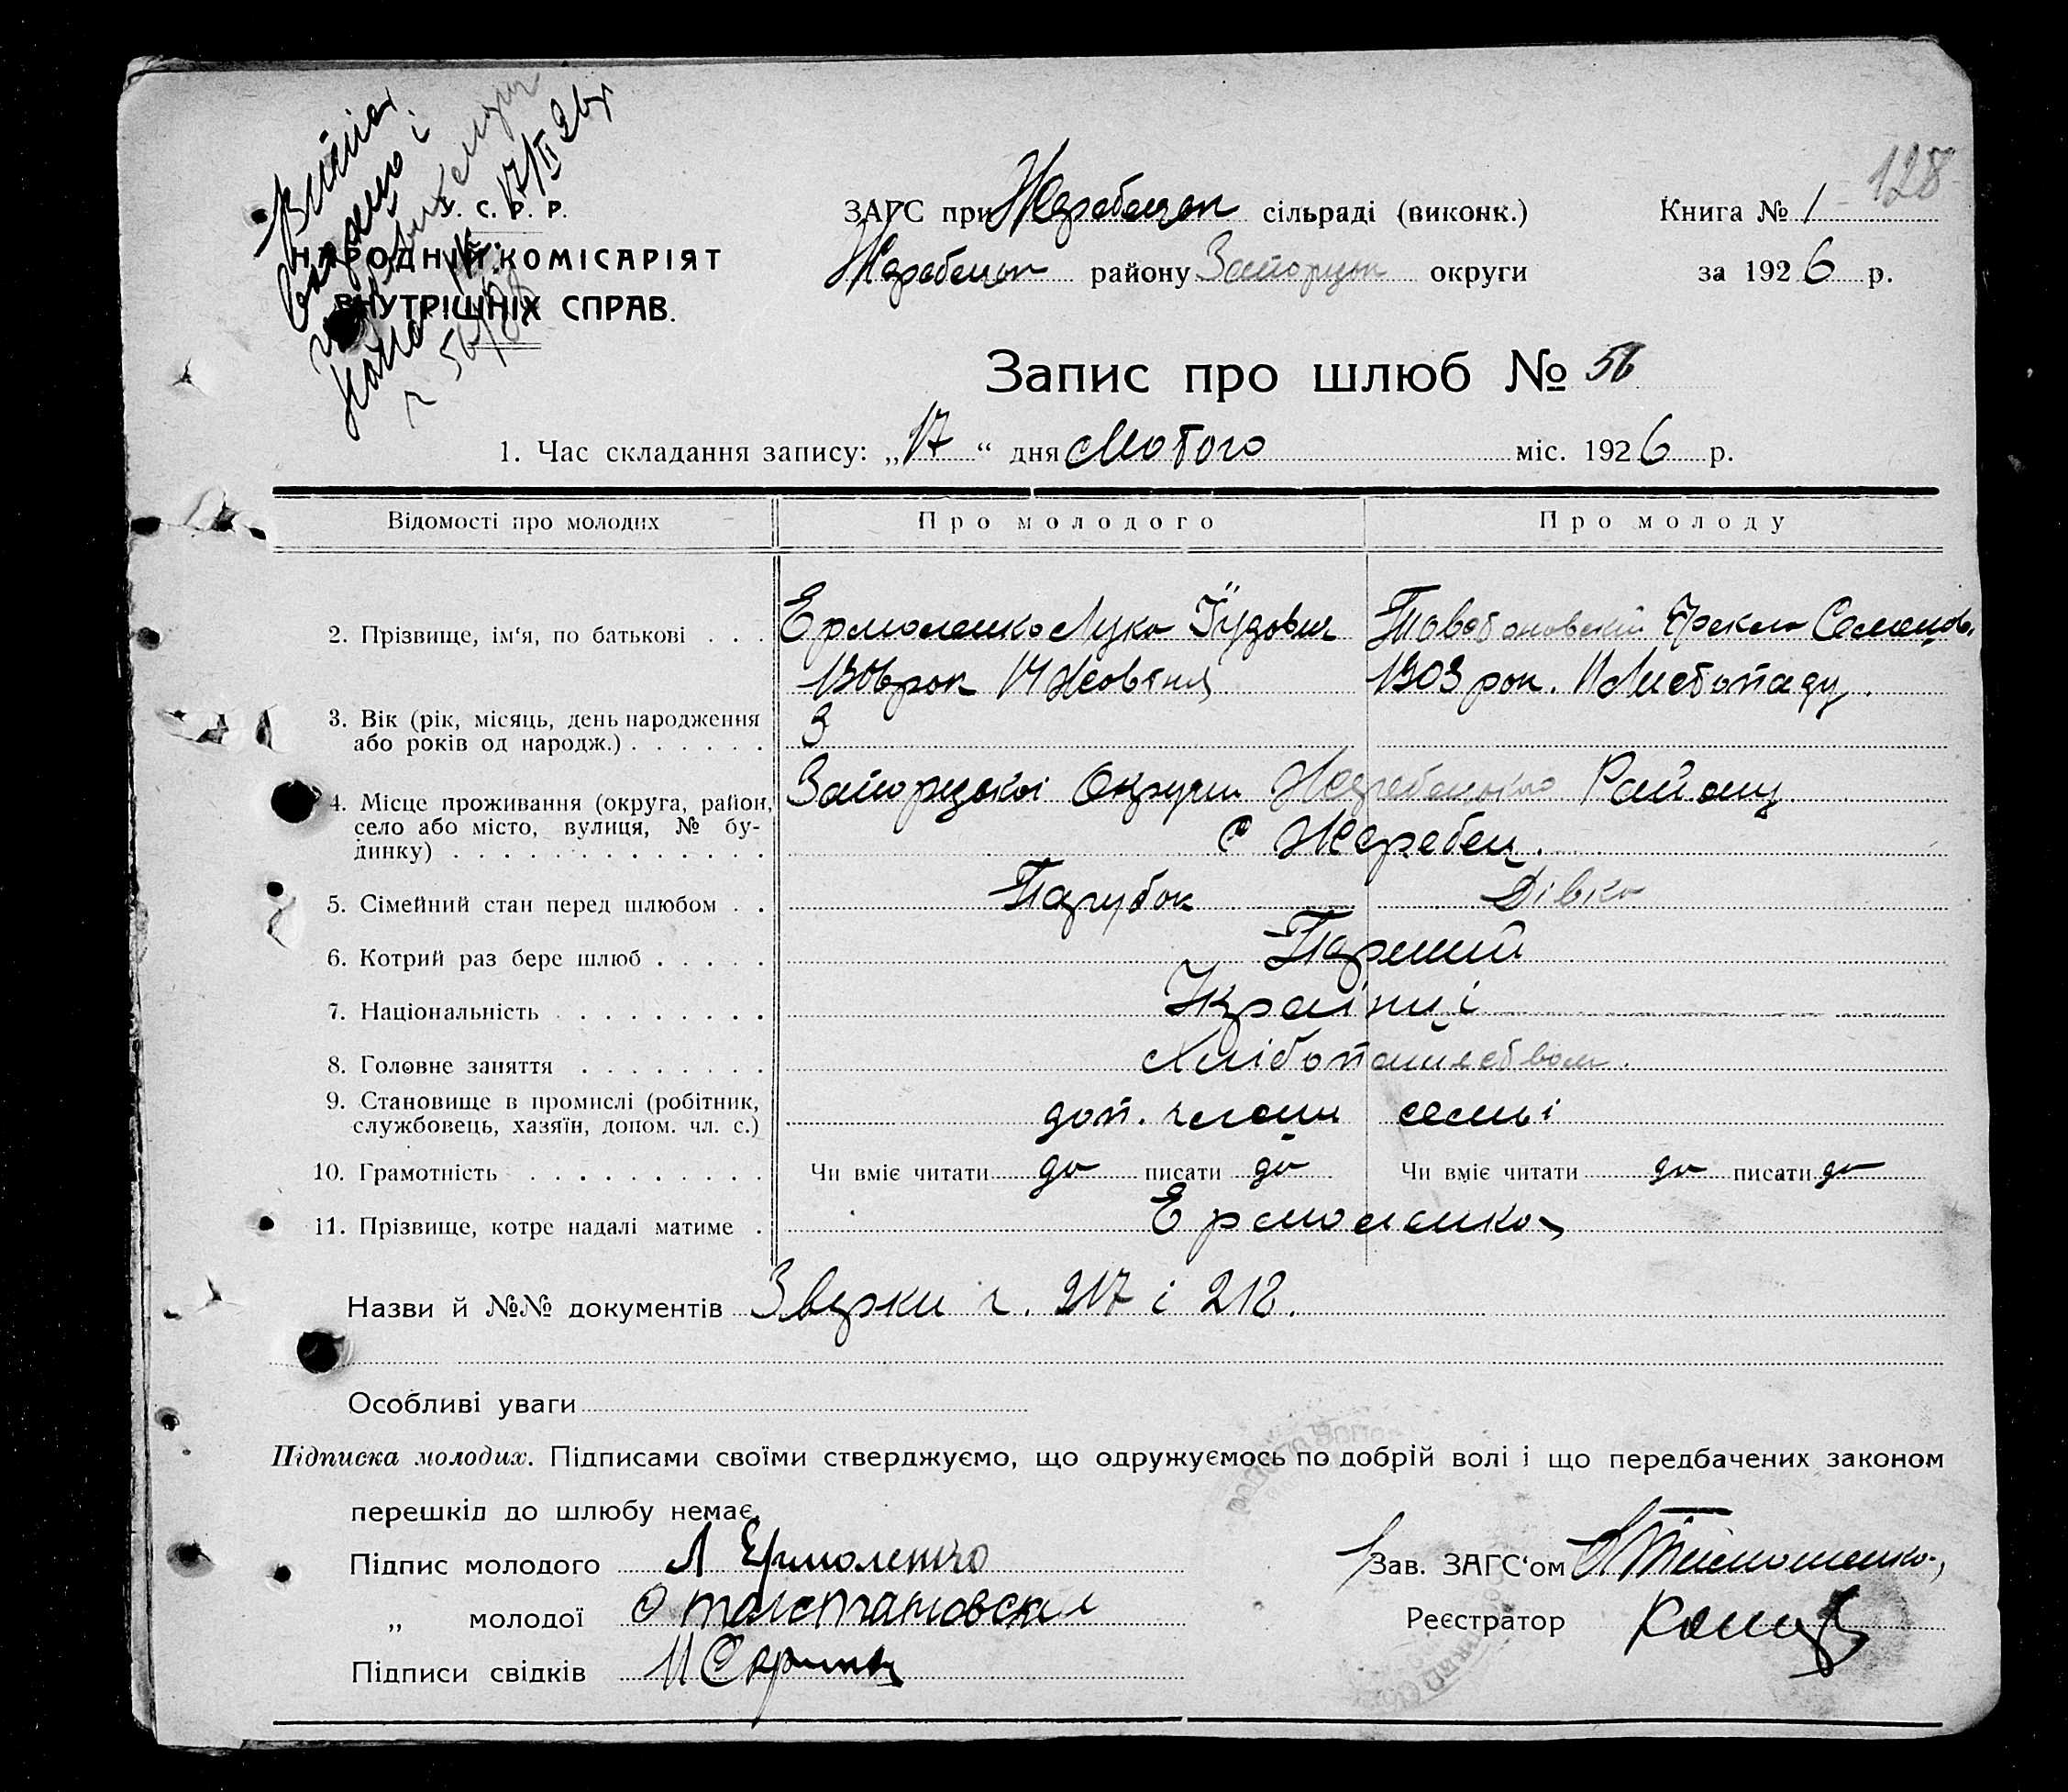 128
У. С. Р. Р.
НАРОДНІЙ КОМІСАРІЯТ
ВНУТРІШНІХ СПРАВ.
17/II 26 р
ЗАГС при Жеребецьк сільраді (виконк.)
Книга № 1
Жеребецьк району Запоризьк округи
за 1926 р.
Запис про шлюб № 56
1. Час складання запису: „17“ дня Лютого міс. 1926 р.
Відомості про молодих
Про молодого
Про молоду
2. Прізвище, ім‘я, по батькові . . .
Ермоленко Лука Юдович
Семенов.
3. Вік (рік, місяць, день народження
або років од народж.) . . . . . .
1906 рок 14 Жовтня
1903 рок. 11 Листопаду.
3
4. Місце проживання (округа, район,
село або місто, вулиця, № бу-
динку) . . . . . . . . . . . . .
Запоризької Округи Жеребецького Району
с Жеребец.
5. Сімейний стан перед шлюбом . .
Парубок
Дівка
6. Котрий раз бере шлюб . . . . .
Перший
7. Національність . . . . . . . . .
Українці
8. Головне заняття . . . . . . . .
Хліборашеством.
9. Становище в промислі (робітник,
службовець, хазяїн, допом. чл. с.)
доп. члени семьі
10. Грамотність . . . . . . . . . .
Чи вміє читати да писати да
Чи вміє читати да писати да
11. Прізвище, котре надалі матиме .
Ермоленко
Назви й №№ документів
г. 217 і 218.
Особливі уваги
Підписка молодих. Підписами своїми стверджуємо, що одружуємось по добрій волі і що передбачених законом
перешкід до шлюбу немає.
Підпис молодого Л Ермоленко
Зав. ЗАГС‘ом Тимошенко
„ молодої
Реєстратор
Підписи свідків